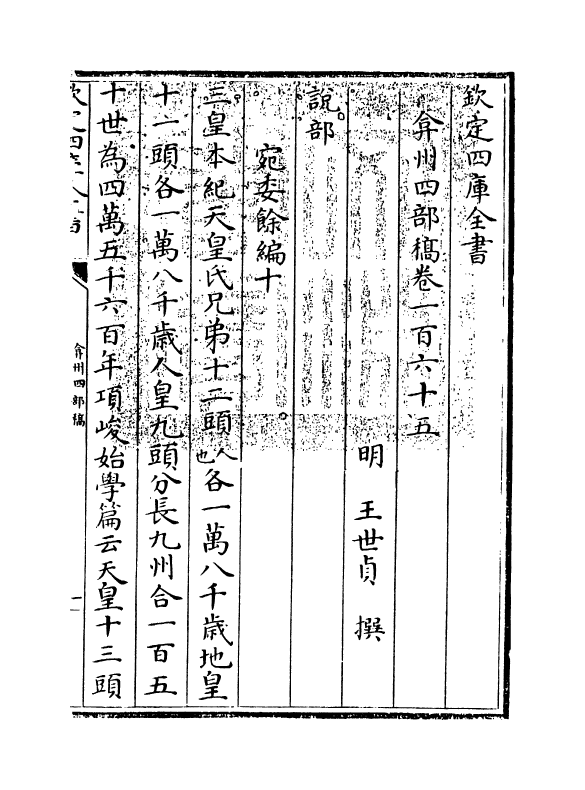 欽定四庫全書
弇州四部稿卷一百六十五
明 王世貞 撰
說部
宛委餘編十
三皇本紀天皇氏兄弟十二頭人也各一萬八千歲地皇
十一頭各一萬八千歲人皇九頭分長九州合一百五
十世為四萬五千六百年項峻始學篇云天皇十三頭
弇州四部稿
一